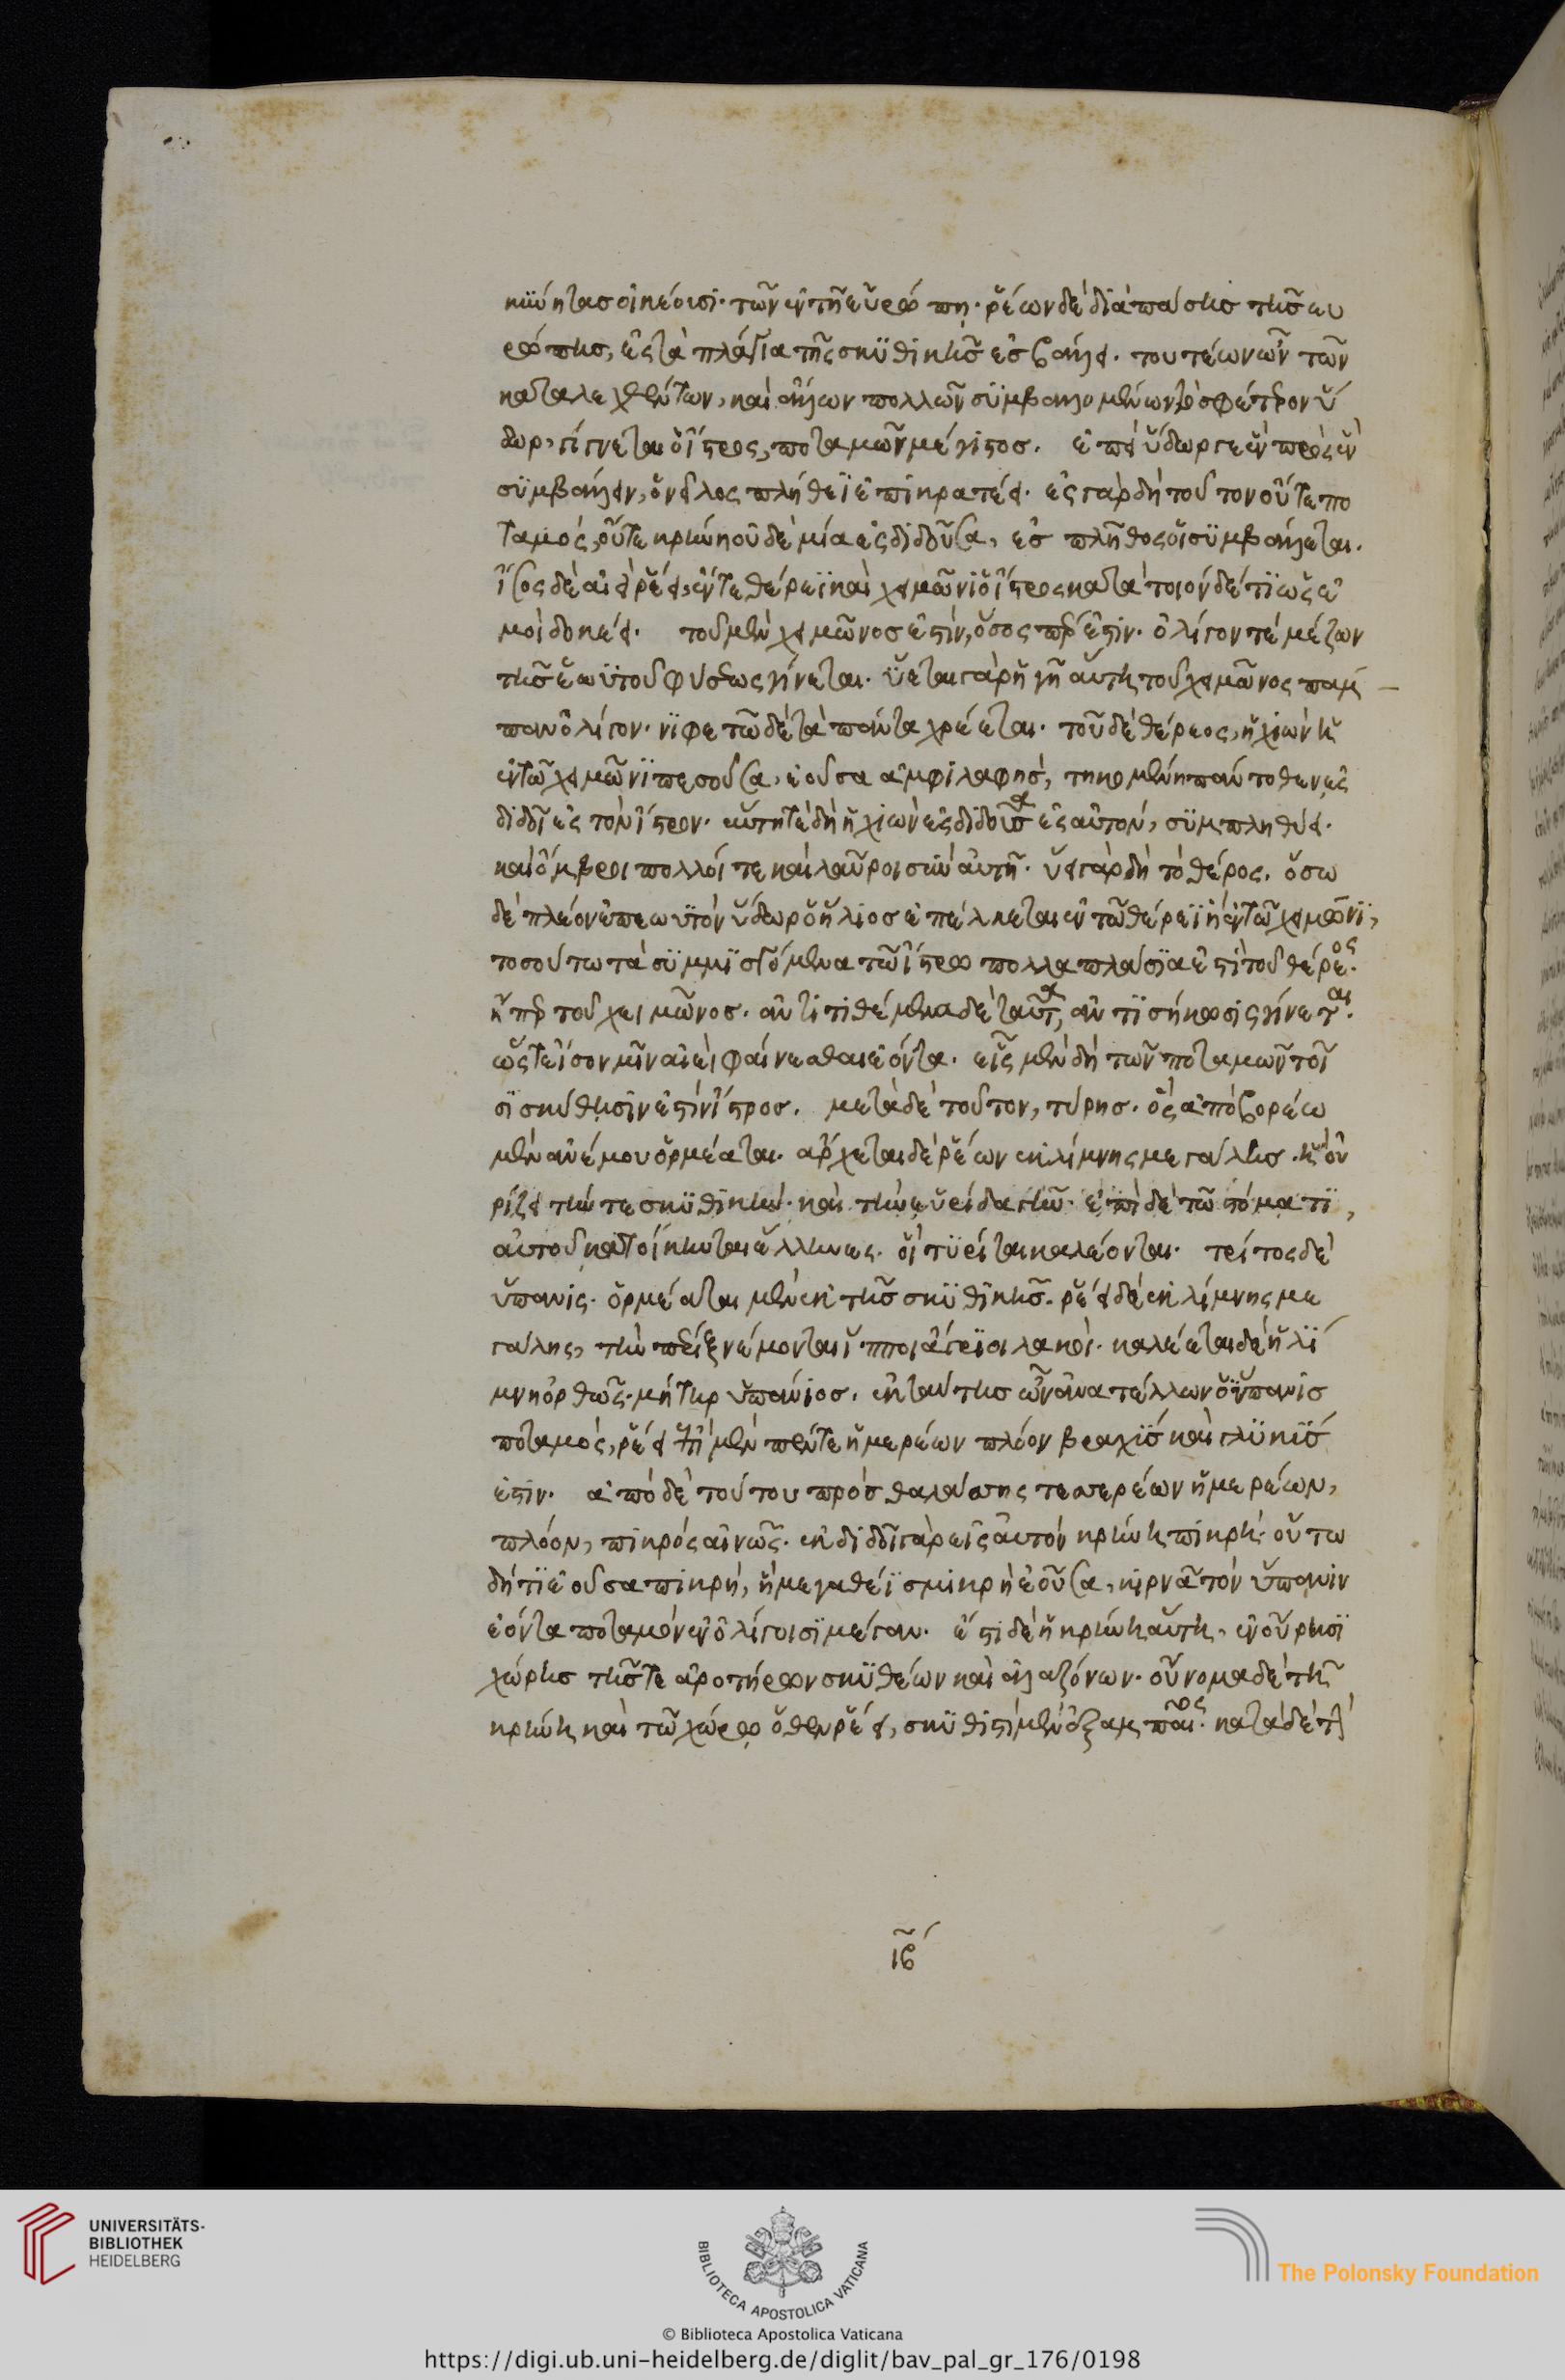 κυνήτας οἰκέουσι· τῶν ἐν τῇ εὐρώπῃ· ῥέων δὲ διὰ πάσης τῆς εὐ
ρώπης, ἐς τὰ πλάγια τῆς σκυθικῆς ἐσβάλλει. τουτέων ὦν τῶν
καταλεχθέντων, καὶ ἄλλων πολλῶν συμβαλλομένων τὸ σφέτερον ὕ
δωρ, γίγνεται ὁ ἴστρος, ποταμῶν μέγιστος. ἐπεὶ ὕδωρ γε ἓν πρὸς ἓν
συμβάλλειν, ὁ νεῖλος πλήθεϊ ἐπικρατέει. ἐς γὰρ δὴ τοῦτον οὔτε πο
ταμός, οὔτε κρήνη οὐδεμία ἐσδιδοῦσα, ἐς πλῆθος οἱ συμβάλλεται.
ἴσος δὲ αἰεὶ ῥέει, ἔν τε θέρεϊ καὶ χειμῶνι ὁ ἴστρος κατὰ τοιόνδε τι ὡς ἐ
μοὶ δοκέει. τοῦ μὲν χειμῶνος ἐστίν, ὅσος περ ἐστίν. ὀλίγον τε μέζων
τῆς ἑωυτοῦ φύσεως γίνεται. ὕεται γὰρ ἡ γῆ αὕτη τοῦ χειμῶνος πάμ
παν ὀλίγον. νιφετῶ δὲ τὰ πάντα χρέεται. τοῦ δὲ θέρεος, ἡ χιὼν ἡ
ἐν τῶ χειμῶνι πεσοῦσα, ἐοῦσα ἀμφιλαφής, τηκομένη πάντοθεν ἐς
διδοῖ ἐς τὸν ἴστρον. αὕτη τε δὴ ἡ χιὼν ἐσδιδοῦσα ἐς αὐτόν, συμπληθύει.
καὶ ὄμβροι πολλοί τε καὶ λαῦροι σὺν αὐτῇ. ὕει γὰρ δὴ τὸ θέρος. ὅσω
δὲ πλέον ἐπ' ἑωυτὸν ὕδωρ ὁ ἥλιος ἐπέλκεται ἐν τῶ θέρεϊ ἢ ἐν τῶ χειμῶνι,
τοσούτω τὰ συμμισγόμενα τῶ ἴστρω πολλαπλάσια ἐστὶ τοῦ θέρεος.
ἤπερ τοῦ χειμῶνος. ἀντιτιθέμενα δὲ ταῦτα, ἀντισήκωσις γίνεται.
ὥστε ἴσον μιν αἰεὶ φαίνεσθαι ἐόντα. εἷς μὲν δὴ τῶν ποταμῶν τοῖ
σι σκύθησιν ἐστὶν ἴστρος. μετὰ δὲ τοῦτον, τύρης. ὃς ἀπὸ βορέω
μὲν ἀνέμου ὁρμέαται. ἄρχεται δὲ ῥέων ἐκ λίμνης μεγάλης. ἣ οὐ
ρίζει τήν τε σκυθικὴν· καὶ τὴν νευρίδα γῆν. ἐπὶ δὲ τῶ στόματι,
αὐτοῦ κατοίκηνται ἕλληνες. οἳ τυρίται καλέονται. τρίτος δὲ
ὕπανις. ὁρμέαται μὲν ἐκ τῆς σκυθικῆς. ῥέει δὲ ἐκ λίμνης με
γάλης, τὴν πέριξ νέμονται ἵπποι ἄγριοι λευκοί. καλέεται δὲ ἡ λί
μνη ὀρθῶς· μήτηρ ὑπάνιος. ἐκ ταύτης ὦν ἀνατέλλων ὁ ὕπανις
ποταμός, ῥέει ἐπὶ μὲν πέντε ἡμερέων πλόον βραχὺς καὶ γλυκὺς
ἐστιν. ἀπὸ δὲ τούτου πρὸς θαλάσσης τεσσερέων ἡμερέων,
πλόον, πικρὸς αἰνῶς. ἐκδιδοῖ γὰρ εἰς αὐτὸν κρήνη πικρή. οὕτω
δή τι ἐοῦσα πικρή, ἣ μεγάθεϊ σμικρὴ ἐοῦσα, κιρνᾶ τὸν ὕπανιν
ἐόντα ποταμὸν ἐν ὀλίγοισι μέγαν. ἔστι δὲ ἡ κρήνη αὕτη, ἐν οὔρησι
χώρης τῆς τε ἀροτήρων σκυθέων καὶ ἀλαζόνων. οὔνομα δὲ τῆ
κρήνη καὶ τῶ χώρω ὅθεν ῥέει, σκυθιστὶ μὲν ἐξαμπαῖος. κατὰ δὲ τὴν
ιβ
UNIVERSITÄTS-
BIBLIOTHEK
HEIDELBERG
BIBLIOTECA APOSTOLICA VATICANA
The Polonsky Foundation
© Biblioteca Apostolica Vaticana
https://digi.ub.uni-heidelberg.de/diglit/bav_pal_gr_176/0198